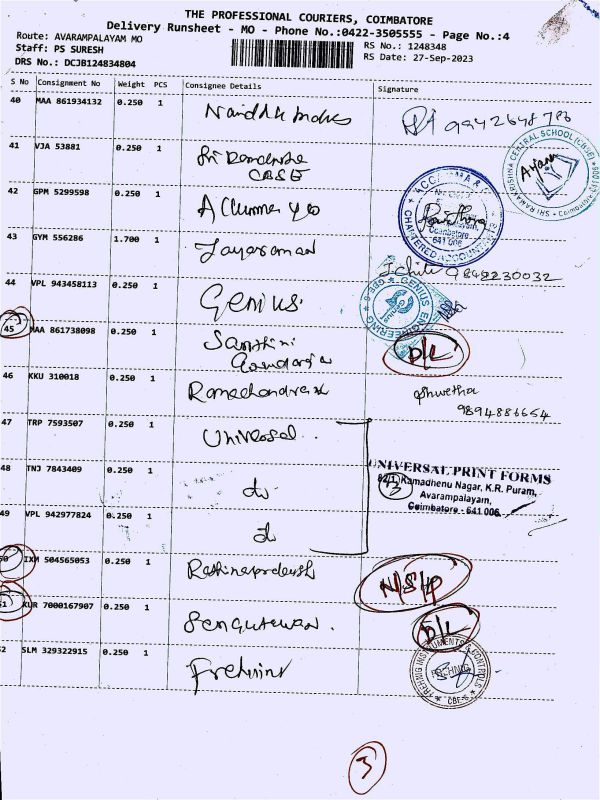 THE PROFESSIONAL COURIERS, COIMBATORE
Delivery Runsheet - MO - Phone No.:0422-3505555 - Page No.:4
Route: AVARAMPALAYAM MO
Staff: PS SURESH
DRS No.: DCJB124834804
RS No.: 1248348
RS Date: 27-Sep-2023
S No Consignment No Weight PCS Consignee Details Signature
40 MAA 861934132 0.250 1
41 VJA 53881 0.250 1 Sri Ramakrishna
CBSE
SRI RAMAKRISHNA CENTRAL SCHOOL (CBSE)
42 GPM 5299598 0.250 1
CHARTERED ACCOUNTANTS
Coimbatore
641 006
43 GYM 556286 1.700 1 Jayaraman
9842230032
44 VPL 943458113 0.250 1 Genius.
GENIUS ENGINEERING
45 MAA 861738098 0.250 1 Santhini
D/L
46 KKU 310018 0.250 1 Ramachandran
Shwetha
9894886654
47 TRP 7593507 0.250 1 Universal.
48 TNJ 7843409 0.250 1 do
UNIVERSAL PRINT FORMS
82/1, Kamadhenu Nagar, K.R. Puram,
Avarampalayam,
Coimbatore - 641 006.
3
49 VPL 942977824 0.250 1 do
50 IXM 504565053 0.250 1
N/S/P
51 KUR 7000167907 0.250 1 Senguttuvan.
D/L
52 SLM 329322915 0.250 1
INSTRUMENTS & CONTROLS
CBE-2
3